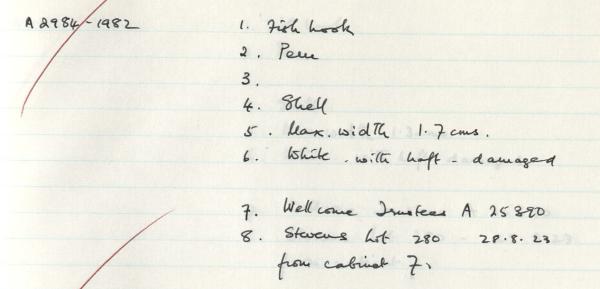 A 2984-1982
1. Fish hook
2. Peru
3.
4. Shell
5. Max. width 1.7 cms.
6. White. with haft - damaged
7. Wellcome Trustees A 25890
8. Stevens Lot 280 - 28.8.23
from cabinet 7.